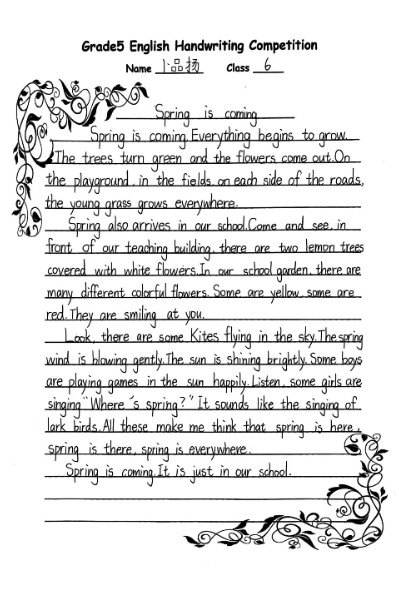 Grade5 English Handwriting Competition
Name 卜品扬 Class 6
Spring is coming
Spring is coming. Everything begins to grow.
The trees turn green and the flowers come out. On
the playground, in the fields, on each side of the roads,
the young grass grows everywhere.
Spring also arrives in our school. Come and see, in
front of our teaching building, there are two lemon trees
covered with white flowers. In our school garden, there are
many different colorful flowers. Some are yellow, some are
red. They are smiling at you.
Look, there are some Kites flying in the sky. The spring
wind is blowing gently. The sun is shining brightly. Some boys
are playing games in the sun happily. Listen, some girls are
singing "Where 's spring?" It sounds like the singing of
lark birds. All these make me think that spring is here,
spring is there, spring is everywhere.
Spring is coming. It is just in our school.